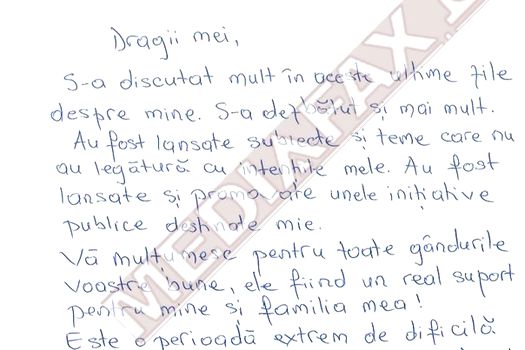 Dragii mei,
S-a discutat mult în aceste ultime zile
despre mine. S-a dezbătut și mai mult.
Au fost lansate subiecte și teme care nu
au legătură cu intențiile mele. Au fost
lansate și promovate unele inițiative
publice destinate mie.
Vă mulțumesc pentru toate gândurile
voastre bune, ele fiind un real suport
pentru mine și familia mea!
Este o perioadă extrem de dificilă
MEDIAFAX